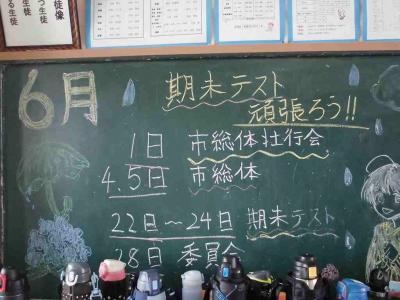 徒像
つ生徒
る生徒
6月
期末テスト
頑張ろう!!
1日 市総体壮行会
4.5日 市総体
22日～24日 期末テスト
28日 委員会